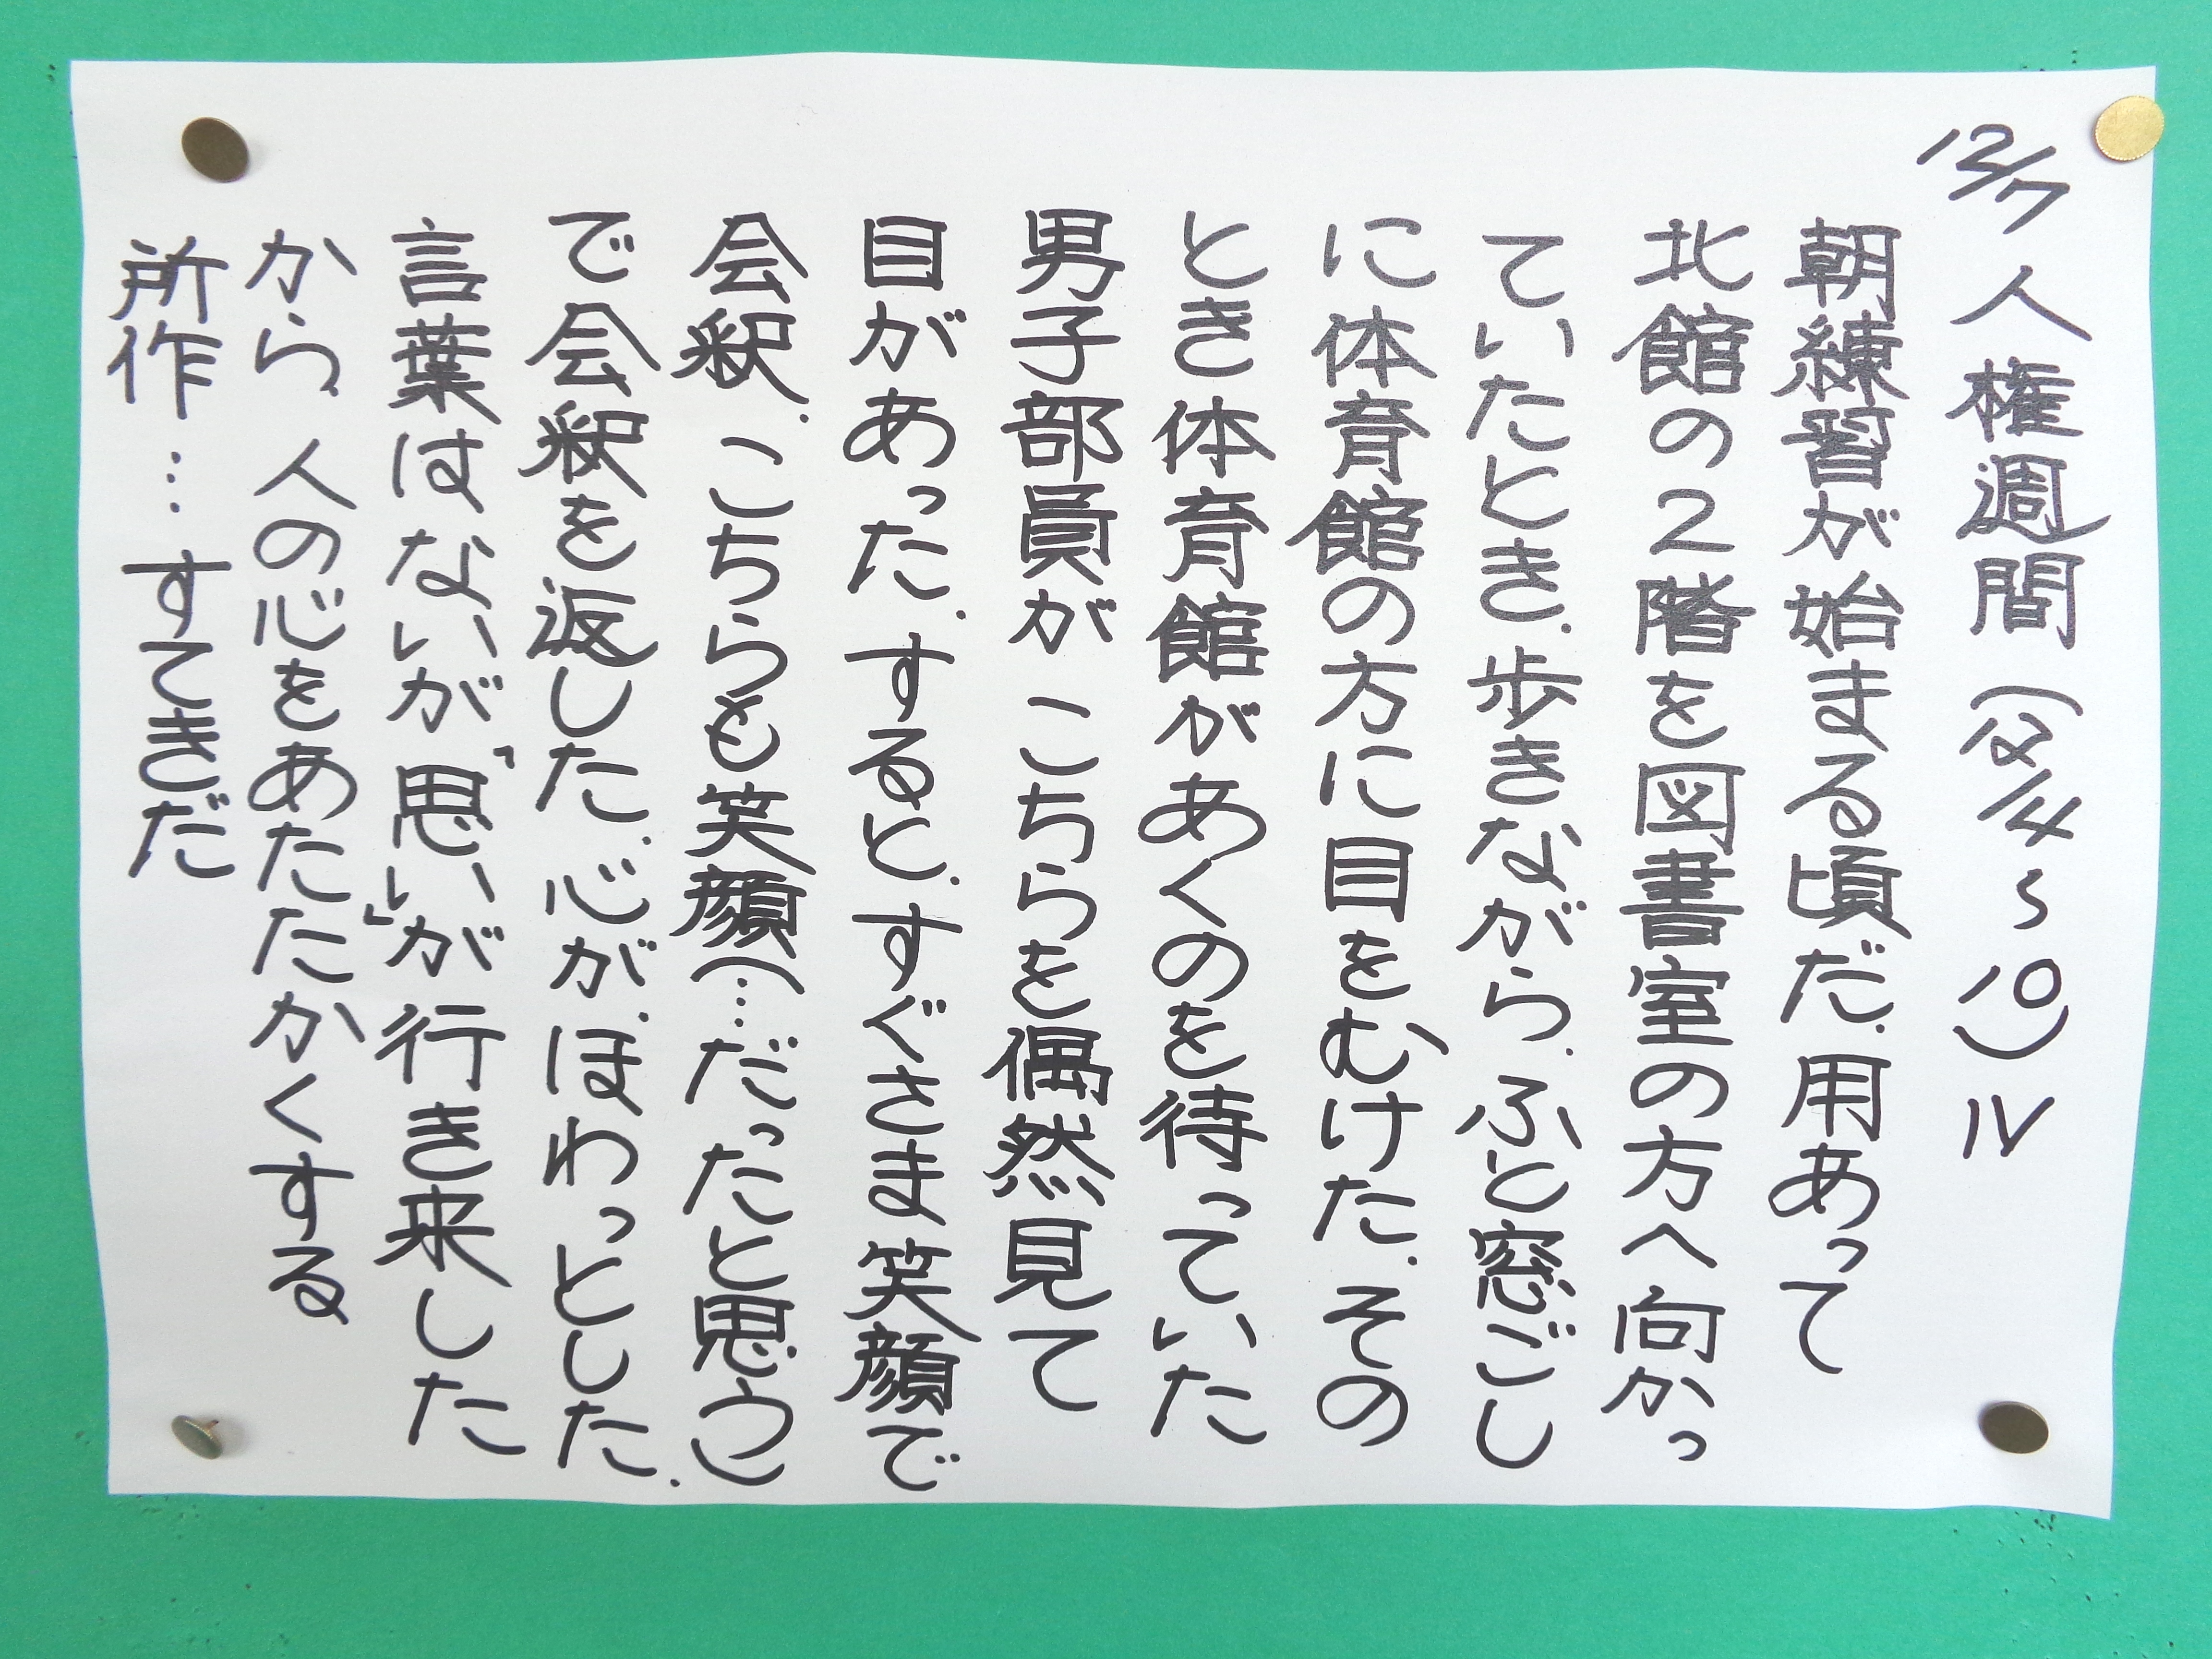 12/7 人権週間(12/4~10)Ⅳ
朝練習が始まる頃だ.用あって
北館の2階を図書室の方へ向かっ
ていたとき.歩きながら.ふと窓ごし
に体育館の方に目をむけた.その
とき体育館があくのを待っていた
男子部員がこちらを偶然見て
目があった.すると.すぐさま笑顔で
会釈.こちらも笑顔(…だったと思う)
で会釈を返した.心が.ほわっとした.
言葉はないが「思い」が行き来した
から.人の心をあたたかくする
所作…すてきだ